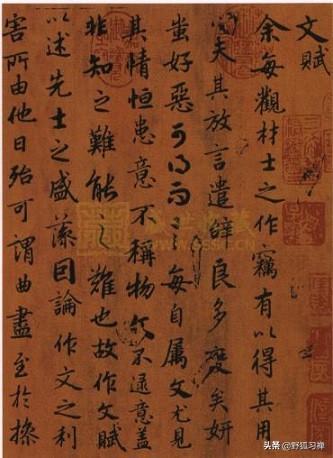 文賦
余每觀材士之作竊有以得其用
心夫其放言遣辭良多變矣妍
蚩好惡可得而言每自属文尤見
其情恒患意不稱物文不逮意蓋
非知之難能之難也故作文賦
以述先士之盛藻因論作文之利
害所由他日殆可謂曲盡至於操
头条 @野狐习禅